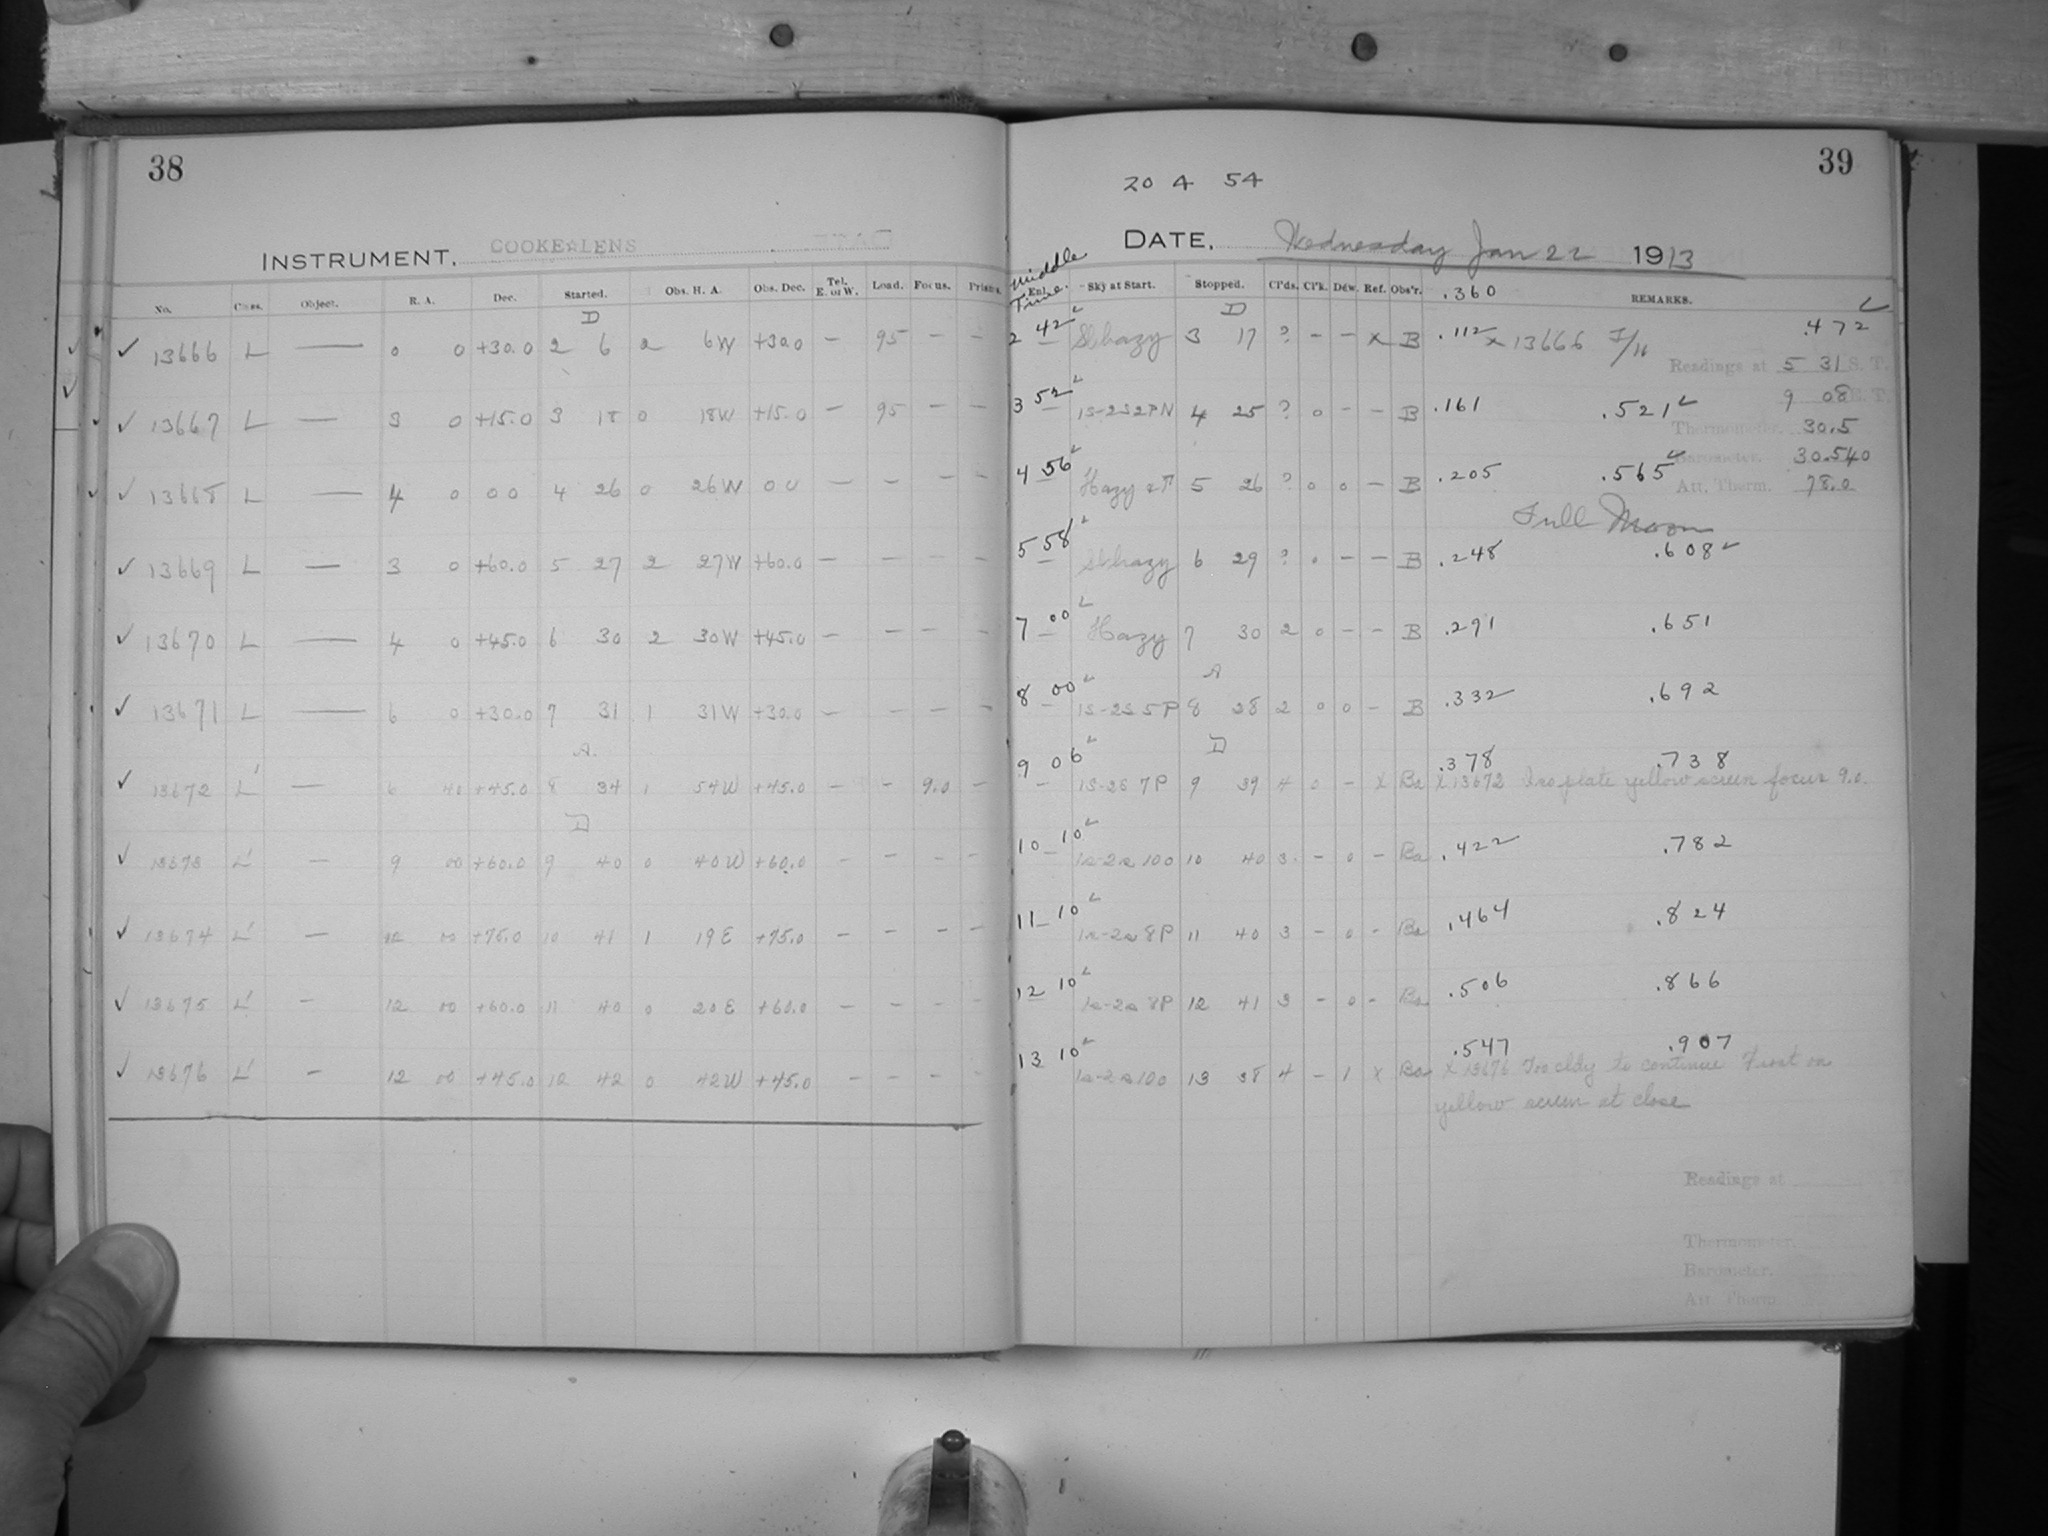 38
39
20 4 54
INSTRUMENT. COOKE☆LENS
DATE. Wednesday Jan 22 1913
No. Class. Object. R. A. Dec. Started. Obs. H. A. Obs. Dec. Tel. E. or W. Load. Focus. Prisms. Middle Time. Exl. Sky at Start. Stopped. Cl'ds. Cl'k. Dew. Ref. Obs'r. .360 REMARKS.
D D
✓ 13666 L — 0 0 +30.0 2 6 2 6W +30.0 – 95 – – 2 42 Sl hazy 3 17 ? – – x B .112 x 13666 .472
Readings at 5 31 S. T.
9 08 E. T.
✓ 13667 L — 3 0 +15.0 3 18 0 18W +15.0 – 95 – – 3 52 1S-2S2PN 4 25 ? 0 – – B .161 .521
Thermometer. 30.5
Barometer. 30.540
✓ 13668 L — 4 0 00 4 26 0 26W 00 – – – – 4 56 Hazy 5 26 ? 0 0 – B .205 .565
Att. Therm. 78.0
Full Moon
✓ 13669 L — 3 0 +60.0 5 27 2 27W +60.0 – – – – 5 58 Sl hazy 6 29 ? 0 – – B .248 .608
✓ 13670 L — 4 0 +45.0 6 30 2 30W +45.0 – – – – 7 00 Hazy 7 30 2 0 – – B .291 .651
A
✓ 13671 L — 6 0 +30.0 7 31 1 31W +30.0 – – – – 8 00 1S-2S 5P 8 28 2 0 0 – B .332 .692
A. D
✓ 13672 L' — 6 40 +45.0 8 34 1 54W +45.0 – – 9.0 – 9 06 1S-2S 7P 9 39 4 0 – x Ba .378 .738
x 13672 Iso plate yellow screen focus 9.0.
D
✓ 13673 L' — 9 00 +60.0 9 40 0 40W +60.0 – – – – 10 10 1s-2s 10o 10 40 3 – 0 – Ba .422 .782
✓ 13674 L' — 12 00 +75.0 10 41 1 19E +75.0 – – – – 11 10 1s-2s 8P 11 40 3 – 0 – Ba .464 .824
✓ 13675 L' — 12 00 +60.0 11 40 0 20E +60.0 – – – – 12 10 1s-2s 8P 12 41 3 – 0 – Ba .506 .866
✓ 13676 L' — 12 00 +45.0 12 42 0 42W +45.0 – – – – 13 10 1s-2s 10o 13 38 4 – 1 x Ba .547 .907
x 13676 Too cldy to continue Frost on
yellow screen at close
Readings at
Thermometer.
Barometer.
Att. Therm.